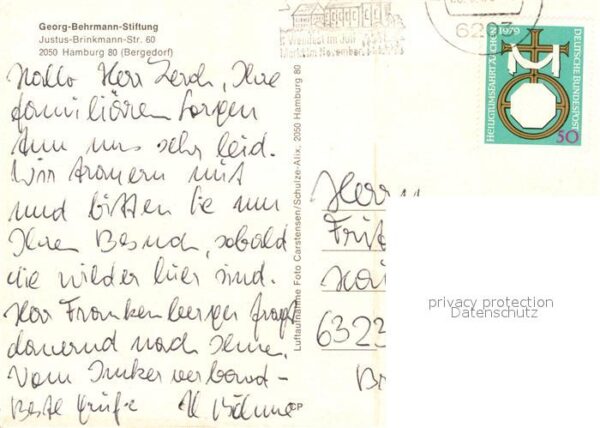 Georg-Behrmann-Stiftung
Justus-Brinkmann-Str. 60
2050 Hamburg 80 (Bergedorf)
Hallo Herr Zerch, Ihre
familiären Sorgen
tun uns sehr leid.
Wir trauern mit
und bitten Sie um
Ihren Besuch, sobald
sie wieder hier sind.
Herr Frankenberger fragt
dauernd nach Ihnen.
Vom Imkerverband -
Beste Grüße H Böhme
Luftaufnahme Foto Carstensen/Schulze-Alix, 2050 Hamburg 80
CP
im Juli
Markt im November
HEILIGTUMSFAHRT AACHEN 1979
DEUTSCHE BUNDESPOST
50
Herrn
Frit
6323
privacy protection
Datenschutz